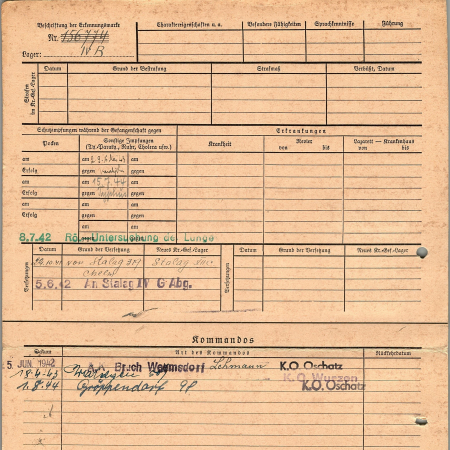 Beschriftung der Erkennungsmarke
Nr. 156774
IV B
Lager:
Charaktereigenschaften u. a.
Besondere Fähigkeiten
Sprachkenntnisse
Führung
Strafen im Kr.-Gef.-Lager
Datum
Grund der Bestrafung
Strafmaß
Verbüßt, Datum
Schutzimpfungen während der Gefangenschaft gegen
Erkrankungen
Pocken
Sonstige Impfungen
(Ty.-Paraty., Ruhr, Cholera usw.)
Krankheit
Revier
von bis
Lazarett — Krankenhaus
von bis
am am am
Erfolg gegen gegen
am am 15.7.44 am
Erfolg gegen gegen
am am am
Erfolg gegen gegen
am am
gegen gegen
8.7.42 Rö.-Untersuchung der Lunge
Versetzungen
Datum
Grund der Versetzung
Neues Kr.-Gef.-Lager
Versetzungen
Datum
Grund der Versetzung
Neues Kr.-Gef.-Lager
von Stalag 319 Stalag
Chelm
5.6.42 An Stalag IV G Abg.
Kommandos
Datum
Art des Kommandos
Rückkehrdatum
5. JUN. 1942 Bruch Wermsdorf Lehmann K.O. Oschatz
18.4.43 K.O. Wurzen
1.8.44 Gröppendorf K.O. Oschatz